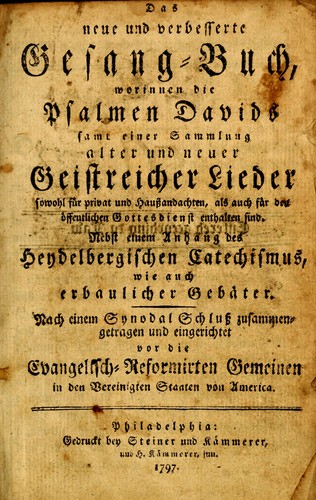 Das
neue und verbesserte
Gesang-Buch,
worinnen die
Psalmen Davids
samt einer Sammlung
alter und neuer
Geistreicher Lieder
sowohl für privat und Haußandachten, als auch für den
öffentlichen Gottesdienst enthalten sind.
Nebst einem Anhang des
Heydelbergischen Catechismus,
wie auch
erbaulicher Gebäter.
Nach einem Synodal Schluß zusammen-
getragen und eingerichtet
vor die
Evangelisch-Reformirten Gemeinen
in den Vereinigten Staaten von America.
Philadelphia:
Gedruckt bey Steiner und Kämmerer,
und H. Kämmerer, jun.
1797.